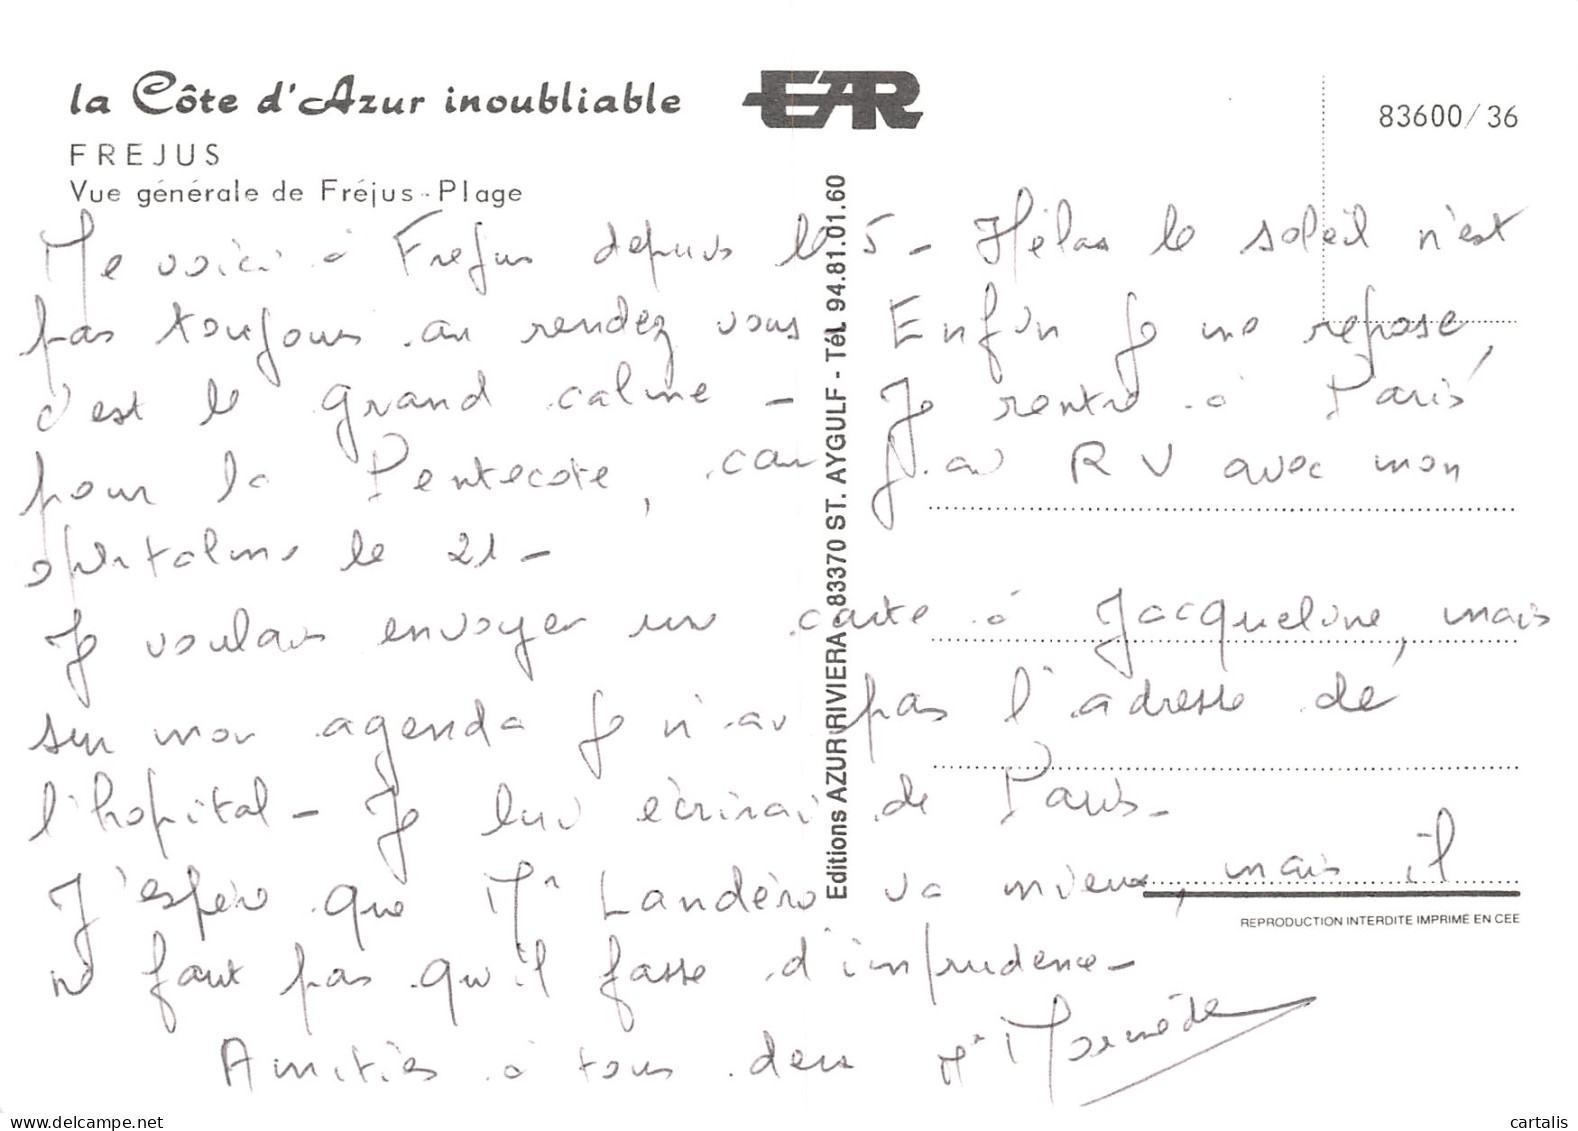 la Côte d'Azur inoubliable
EAR
83600/36
FREJUS
Vue générale de Fréjus-Plage
Me voici à Frejus depuis le 5 - Hélas le soleil n'est
pas toujours au rendez vous Enfin je me repose,
c'est le grand calme - Je rentre à Paris
pour la Pentecote, car j'ai RV avec mon
ophtalmo le 21 -
Je voulais envoyer une carte à Jacqueline, mais
sur mon agenda je n'ai pas l'adresse de
l'hopital - Je lui écrirai de Paris -
J'espère que Mr Landéro va mieux, mais il
ne faut pas qu'il fasse d'imprudence -
Amitiés à tous deux
Editions AZUR RIVIERA 83370 ST. AYGULF - Tél. 94.81.01.60
REPRODUCTION INTERDITE IMPRIME EN CEE
cartalis